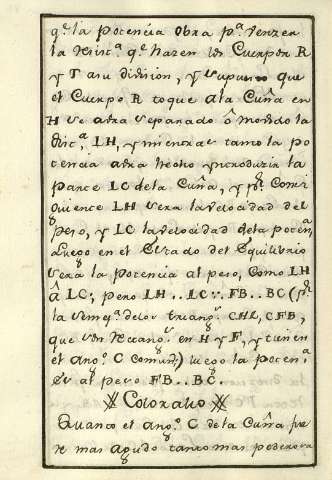 q.e la Potencia obra p.a Venzer
la Resist.a q.e hazen los Cuerpos R
y T a su division, y supuesto que
el Cuerpo R toque a la Cuña en
H se abra separado ô movido la
dist.a LH, y mientras tanto la po
tencia abra hecho introduzir la
parte LC de la Cuña, y p.r Consi
guiente LH sera la velocidad del
peso, y LC la velocidad de la poten.a
Luego en el Estado del Equilibrio
sera la potencia al peso, como LH
â LC; pero LH .. LC :: FB .. BC (p.r
la semeq.a de los triang.s CHL, CFB,
que son Rectang.s en H y F, y tienen
el ang.o C comun) luego la poten.a
es al peso FB .. BC.
Colorario
Quanto el ang.o C de la Cuña fue
re mas agudo tanto mas poderosa